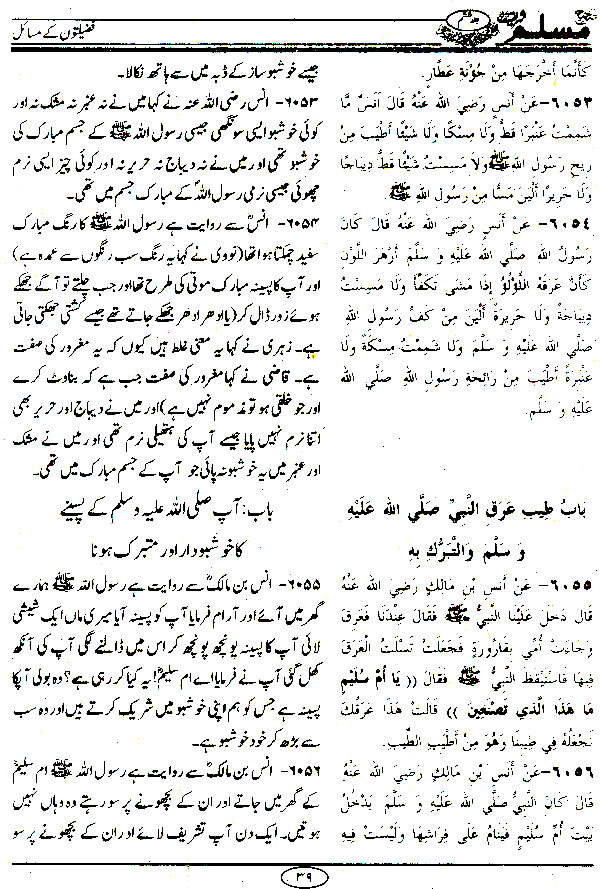 مسلم
فضیلتوں کے مسائل
كَأَنَّمَا أَخْرَجَهَا مِنْ جُؤْنَةِ عَطَّارٍ.
٦٠٥٣- عَنْ أَنَسٍ رَضِيَ اللهُ عَنْهُ قَالَ أَنَسٌ مَّا
شَمِمْتُ عَنْبَرًا قَطُّ وَلَا مِسْكًا وَلَا شَيْئًا أَطْيَبَ مِنْ
رِيحِ رَسُولِ اللهِ ﷺ وَلَا مَسِسْتُ شَيْئًا قَطُّ دِيبَاجًا
وَلَا حَرِيرًا أَلْيَنَ مَسًّا مِنْ رَسُولِ اللهِ ﷺ.
٦٠٥٤- عَنْ أَنَسٍ رَضِيَ اللهُ عَنْهُ قَالَ كَانَ
رَسُولُ اللهِ صَلَّي اللهُ عَلَيْهِ وَ سَلَّمَ أَزْهَرَ اللَّوْنِ
كَأَنَّ عَرَقَهُ اللُّؤْلُؤُ إِذَا مَشَى تَكَفَّأَ وَلَا مَسِسْتُ
دِيبَاجَةً وَلَا حَرِيرَةً أَلْيَنَ مِنْ كَفِّ رَسُولِ اللهِ
صَلَّي اللهُ عَلَيْهِ وَ سَلَّمَ وَلَا شَمِمْتُ مِسْكَةً وَلَا
عَنْبَرَةً أَطْيَبَ مِنْ رَائِحَةِ رَسُولِ اللهِ صَلَّي الله
عَلَيْهِ وَ سَلَّم.
بَابُ طِيبِ عَرَقِ النَّبِيِّ صَلَّي الله عَلَيْهِ
وَ سَلَّمَ وَالتَّبَرُّكِ بِهِ
٦٠٥٥- عَنْ أَنَسِ بْنِ مَالِكٍ رَضِيَ الله عَنْهُ
قَالَ دَخَلَ عَلَيْنَا النَّبِيُّ ﷺ فَقَالَ عِنْدَنَا فَعَرِقَ
وَجَاءَتْ أُمِّي بِقَارُورَةٍ فَجَعَلَتْ تَسْلُتُ الْعَرَقَ
فِيهَا فَاسْتَيْقَظَ النَّبِيُّ ﷺ فَقَالَ (( يَا أُمَّ سُلَيْمٍ
مَا هَذَا الَّذِي تَصْنَعِينَ )) قَالَتْ هَذَا عَرَقُكَ
نَجْعَلُهُ فِي طِيبِنَا وَهُوَ مِنْ أَطْيَبِ الطِّيبِ.
٦٠٥٦- عَنْ أَنَسِ بْنِ مَالِكٍ رَضِيَ الله عَنْهُ
قَالَ كَانَ النَّبِيُّ صَلَّي الله عَلَيْهِ وَ سَلَّمَ يَدْخُلُ
بَيْتَ أُمِّ سُلَيْمٍ فَيَنَامُ عَلَى فِرَاشِهَا وَلَيْسَتْ فِيهِ
جیسے خوشبو ساز کے ڈبہ میں سے ہاتھ نکالا۔
۶۰۵۳- انس رضی اللہ عنہ نے کہا میں نے نہ عنبر نہ مشک نہ اور
کوئی خوشبو ایسی سونگھی جیسی رسول اللہ ﷺ کے جسم مبارک کی
خوشبو تھی اور میں نے نہ دیباج نہ حریر نہ اور کوئی چیز ایسی نرم
چھوئی جیسی نرمی رسول اللہؐ کے مبارک جسم میں تھی۔
۶۰۵۴- انسؓ سے روایت ہے رسول اللہ ﷺ کا رنگ مبارک
سفید چمکتا ہوا تھا (نووی نے کہا یہ رنگ سب رنگوں سے عمدہ ہے)
اور آپ کا پسینہ مبارک موتی کی طرح تھا اور جب چلتے تو آگے جھکے
ہوئے زور ڈال کر (یا ادھر ادھر جھکے جاتے تھے جیسے کشتی جھکتی جاتی
ہے۔ زہری نے کہا یہ معنی غلط ہیں کیوں کہ یہ مغرور کی صفت
ہے۔ قاضی نے کہا مغرور کی صفت جب ہے کہ بناوٹ کرے
اور جو خلقی ہو تو مذموم نہیں ہے) اور میں نے دیباج اور حریر بھی
اتنا نرم نہیں پایا جیسے آپ کی ہتھیلی نرم تھی اور میں نے مشک
اور عنبر میں یہ خوشبو نہ پائی جو آپ کے جسم مبارک میں تھی۔
باب: آپ صلی اللہ علیہ وسلم کے پسینے
کا خوشبودار اور متبرک ہونا
۶۰۵۵- انس بن مالکؓ سے روایت ہے رسول اللہ ﷺ ہمارے
گھر میں آئے اور آرام فرمایا آپ کو پسینہ آیا میری ماں ایک شیشی
لائی آپ کا پسینہ پونچھ پونچھ کر اس میں ڈالنے لگی آپ کی آنکھ
کھل گئی آپ نے فرمایا اے ام سلیمؓ! یہ کیا کر رہی ہے؟ وہ بولی آپکا
پسینہ ہے جس کو ہم اپنی خوشبو میں شریک کرتے ہیں اور وہ سب
سے بڑھ کر خود خوشبو ہے۔
۶۰۵۶- انس بن مالکؓ سے روایت ہے رسول اللہ ﷺ ام سلیمؓ
کے گھر میں جاتے اور ان کے بچھونے پر سو رہتے وہ وہاں نہیں
ہوتیں۔ ایک دن آپ تشریف لائے اور ان کے بچھونے پر سو
۳۹